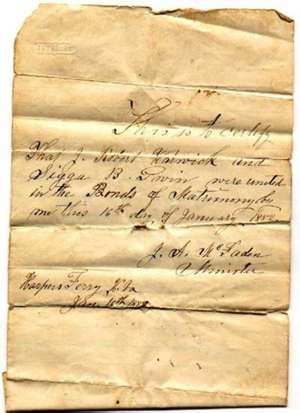 This is to certify
that J. Robert Warwick and
B. Irwin were united
in the Bonds of Matrimony by
me this 16th day of January
J. A. McFaden
Minister
Harpers Ferry
Jan 16th